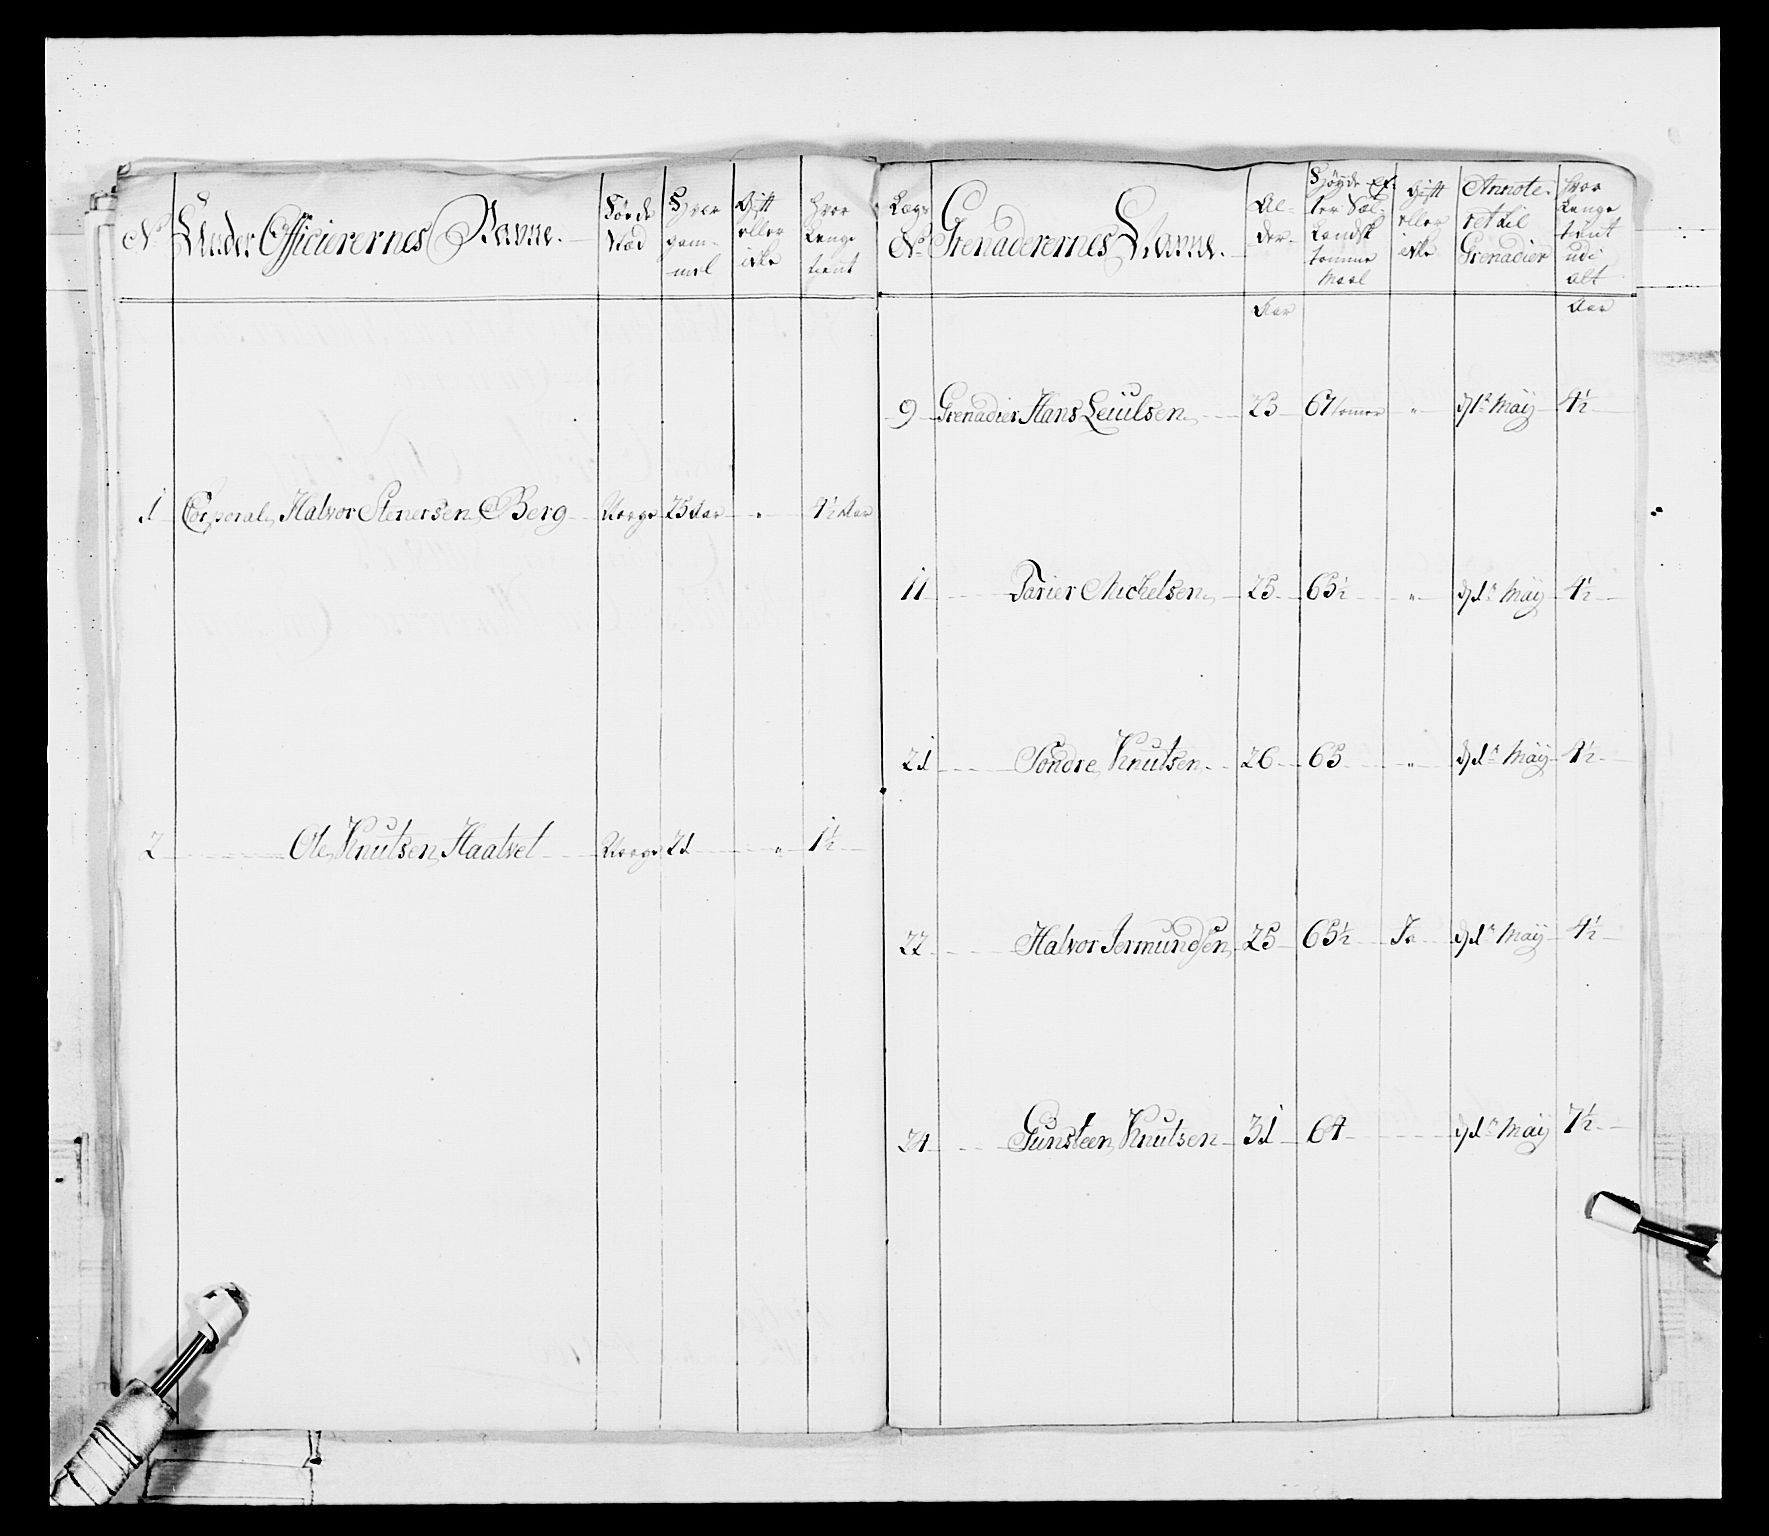 No Under Officierernes Navne. Føde Stæd Hvor gam- mel Gift eller ikke Hvor Lenge tient
1 Corporal Halvor Stenersen Berg Norge 25 Aar " 4½ Aar
2 Ole Knutsen Haatvet Norge 21 " 1½
Lægs No Grenaderernes Navne. Al- der. Høyde ef- ter Sæl- Landsk tomme Maal Gift eller ikke Annote- ret til Grenadier Hvor Lenge tient udi alt
Aar Aar
9 Grenadier Hans Leuulsen 23 67 tommer " d 1t May 4½
11 Tarier Michelsen 25 65½ " d 1t May 4½
21 Tondre Knutsen 26 65 " d 1t May 4½
22 Halvor Jermundsen 25 65½ Ja d 1t May 4½
24 Gunsteen Knutsen 31 64 d 1t May 7½